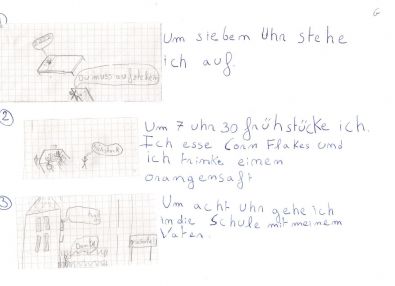 Um sieben Uhr stehe
ich auf.
Du muss aufstehen
2
Um 7 uhr 30 frühstücke ich.
Ich esse Corn Flakes und
ich trinke einem
orangensaft
3
Um acht Uhr gehe ich
in die Schule mit meinem
Vater.